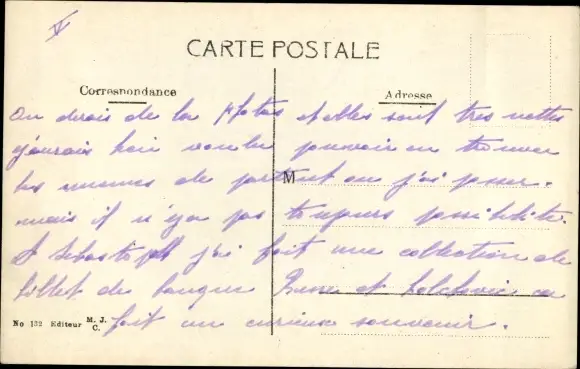 V
CARTE POSTALE
Correspondance
Adresse
On dirais de la photos et elles sont très nettes
j'aurais bien voulu pouvoir en trouver
les mêmes de partout ou j'ai passer.
M
mais il n'y a pas toujours possibilité.
A Sebastopll j'ai fait une collection de
billet de banque Russe et bolchevic ca
fait un curieux souvenir.
No 132 Editeur M. J. C.